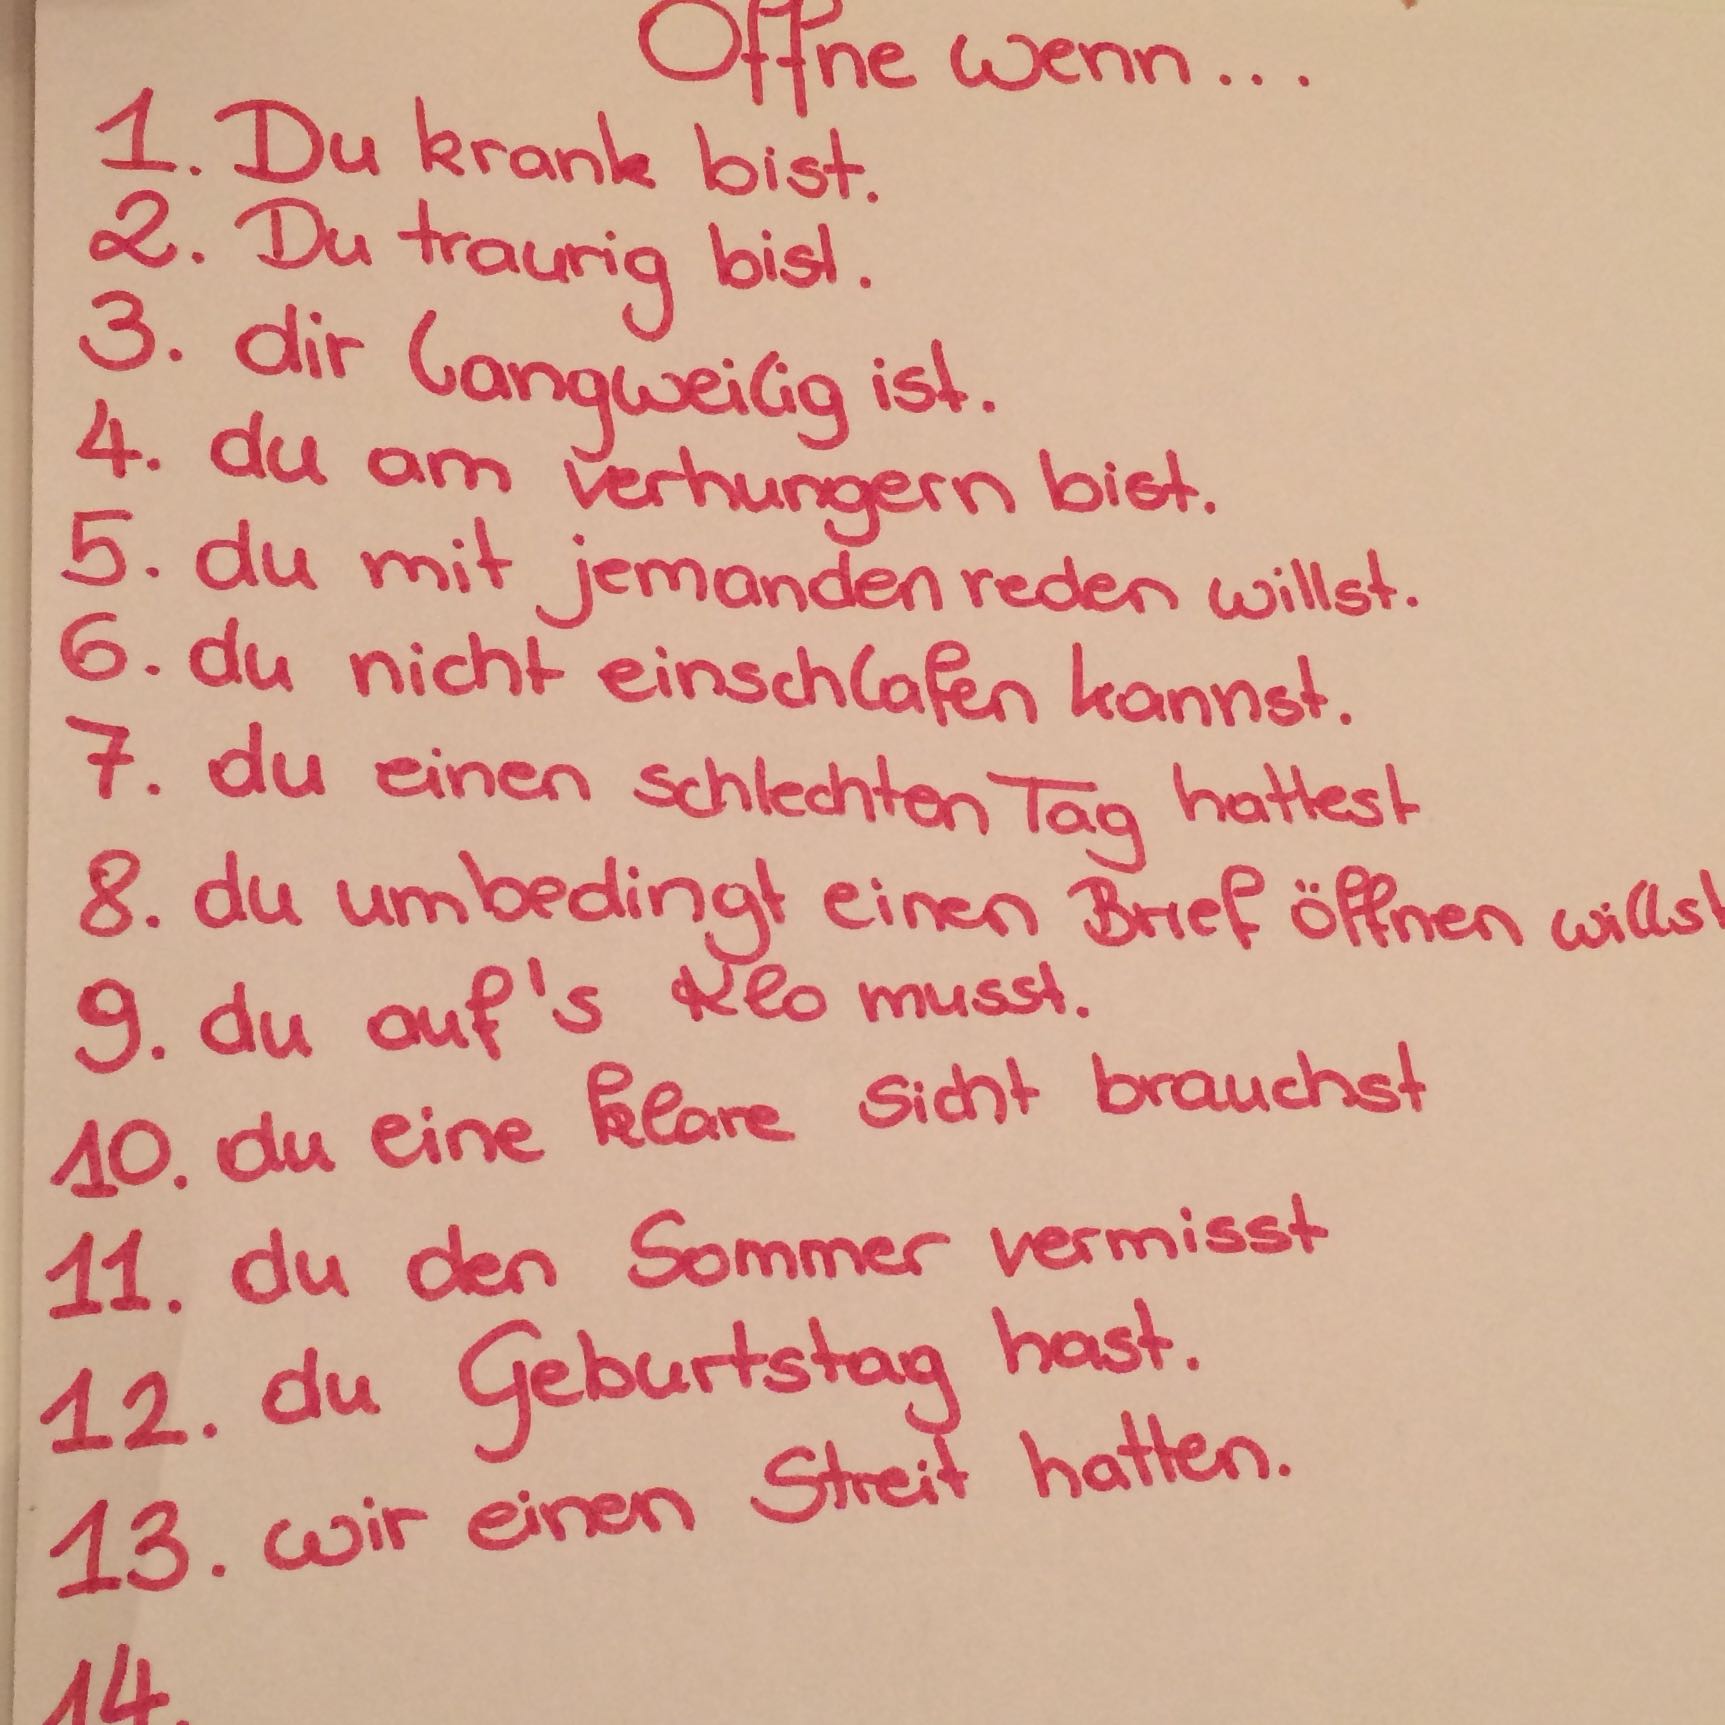 Öffne wenn...
1. Du krank bist.
2. Du traurig bist.
3. dir langweilig ist.
4. du am verhungern bist.
5. du mit jemanden reden willst.
6. du nicht einschlafen kannst.
7. du einen schlechten Tag hattest
8. du umbedingt einen Brief öffnen willst
9. du auf's Klo musst.
10. du eine klare sicht brauchst
11. du den Sommer vermisst
12. du Geburtstag hast.
13. wir einen Streit hatten.
14.